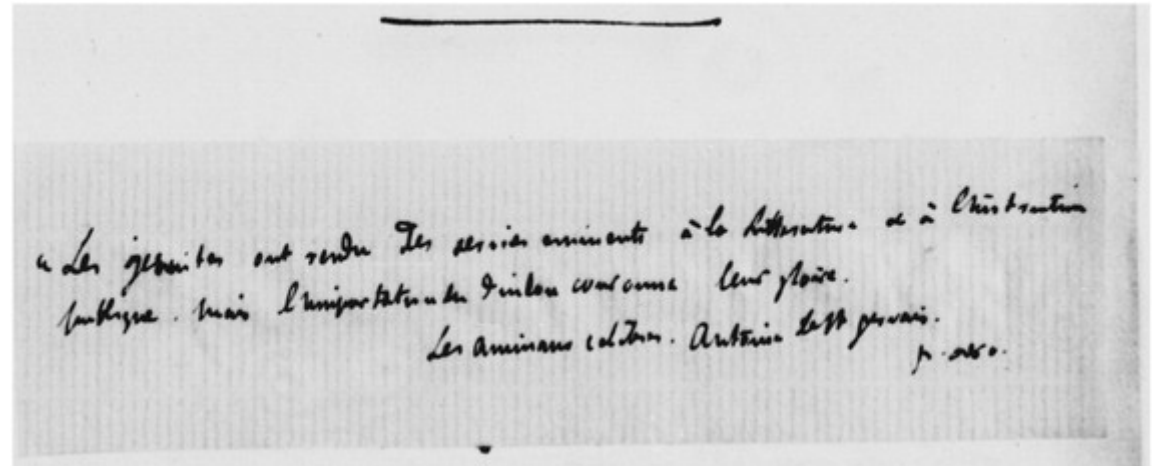 " Les gesuites ont rendu des services eminents à la litterature et à l'instruction
publique. mais l'importation du dindon couronne leur gloire.
Les animaux celebres. Antoine
p.